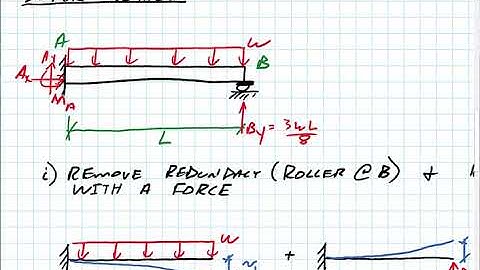 A
w
B
Ax
MA
L
By = 3wL/8
i) REMOVE REDUNDACY (ROLLER @ B) &
WITH A FORCE
w
+